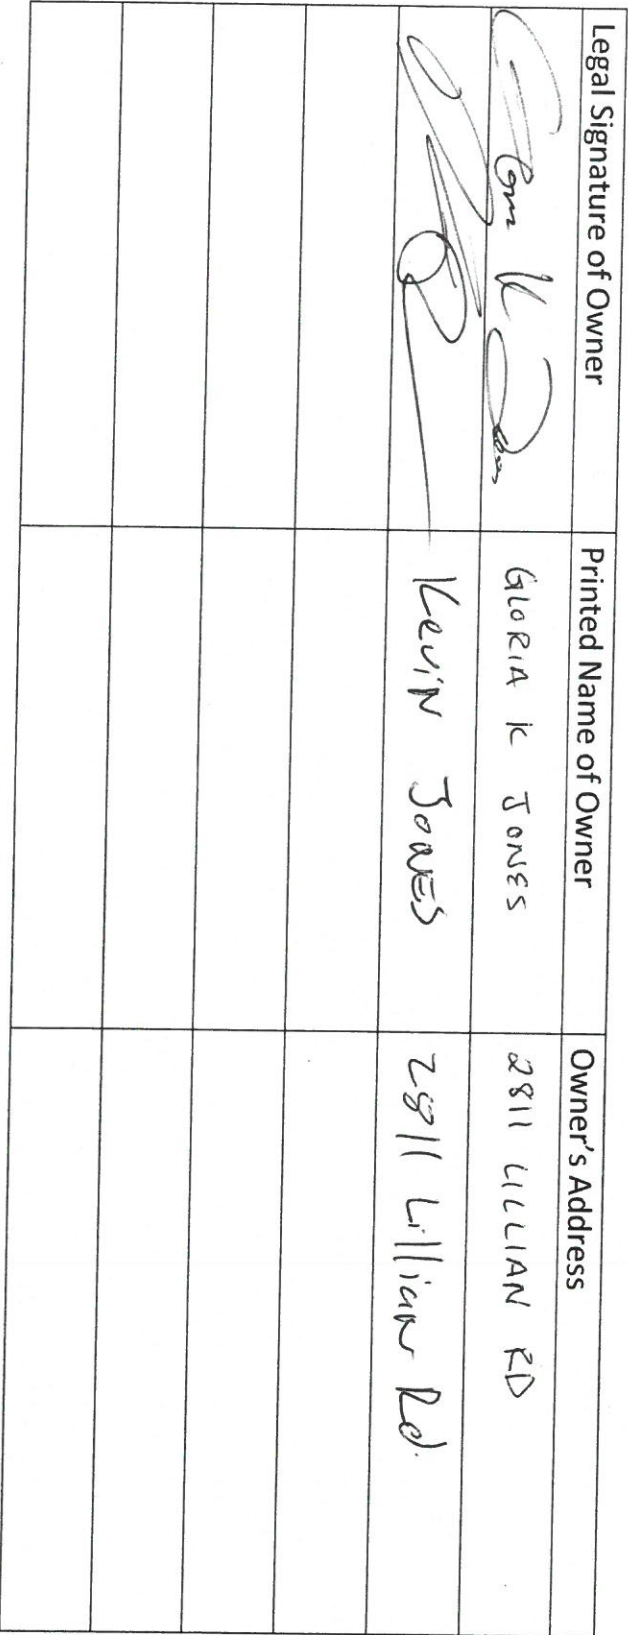 Legal Signature of Owner Printed Name of Owner Owner's Address
GLORIA K JONES 2811 LILLIAN RD
Kevin JONES 2811 Lillian Rd.